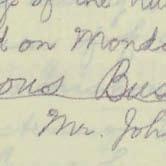 of the
on Monda
ous Bus
Mr. Joh